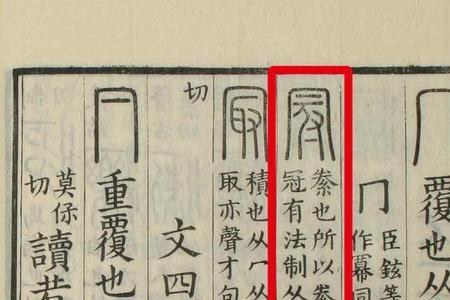 冖覆也从
冂臣鉉等
作冪同
冠絭也所以絭
冠有法制从
冣積也从冖
取亦聲才句
切
文四
冃重覆也
莫保
切
讀若